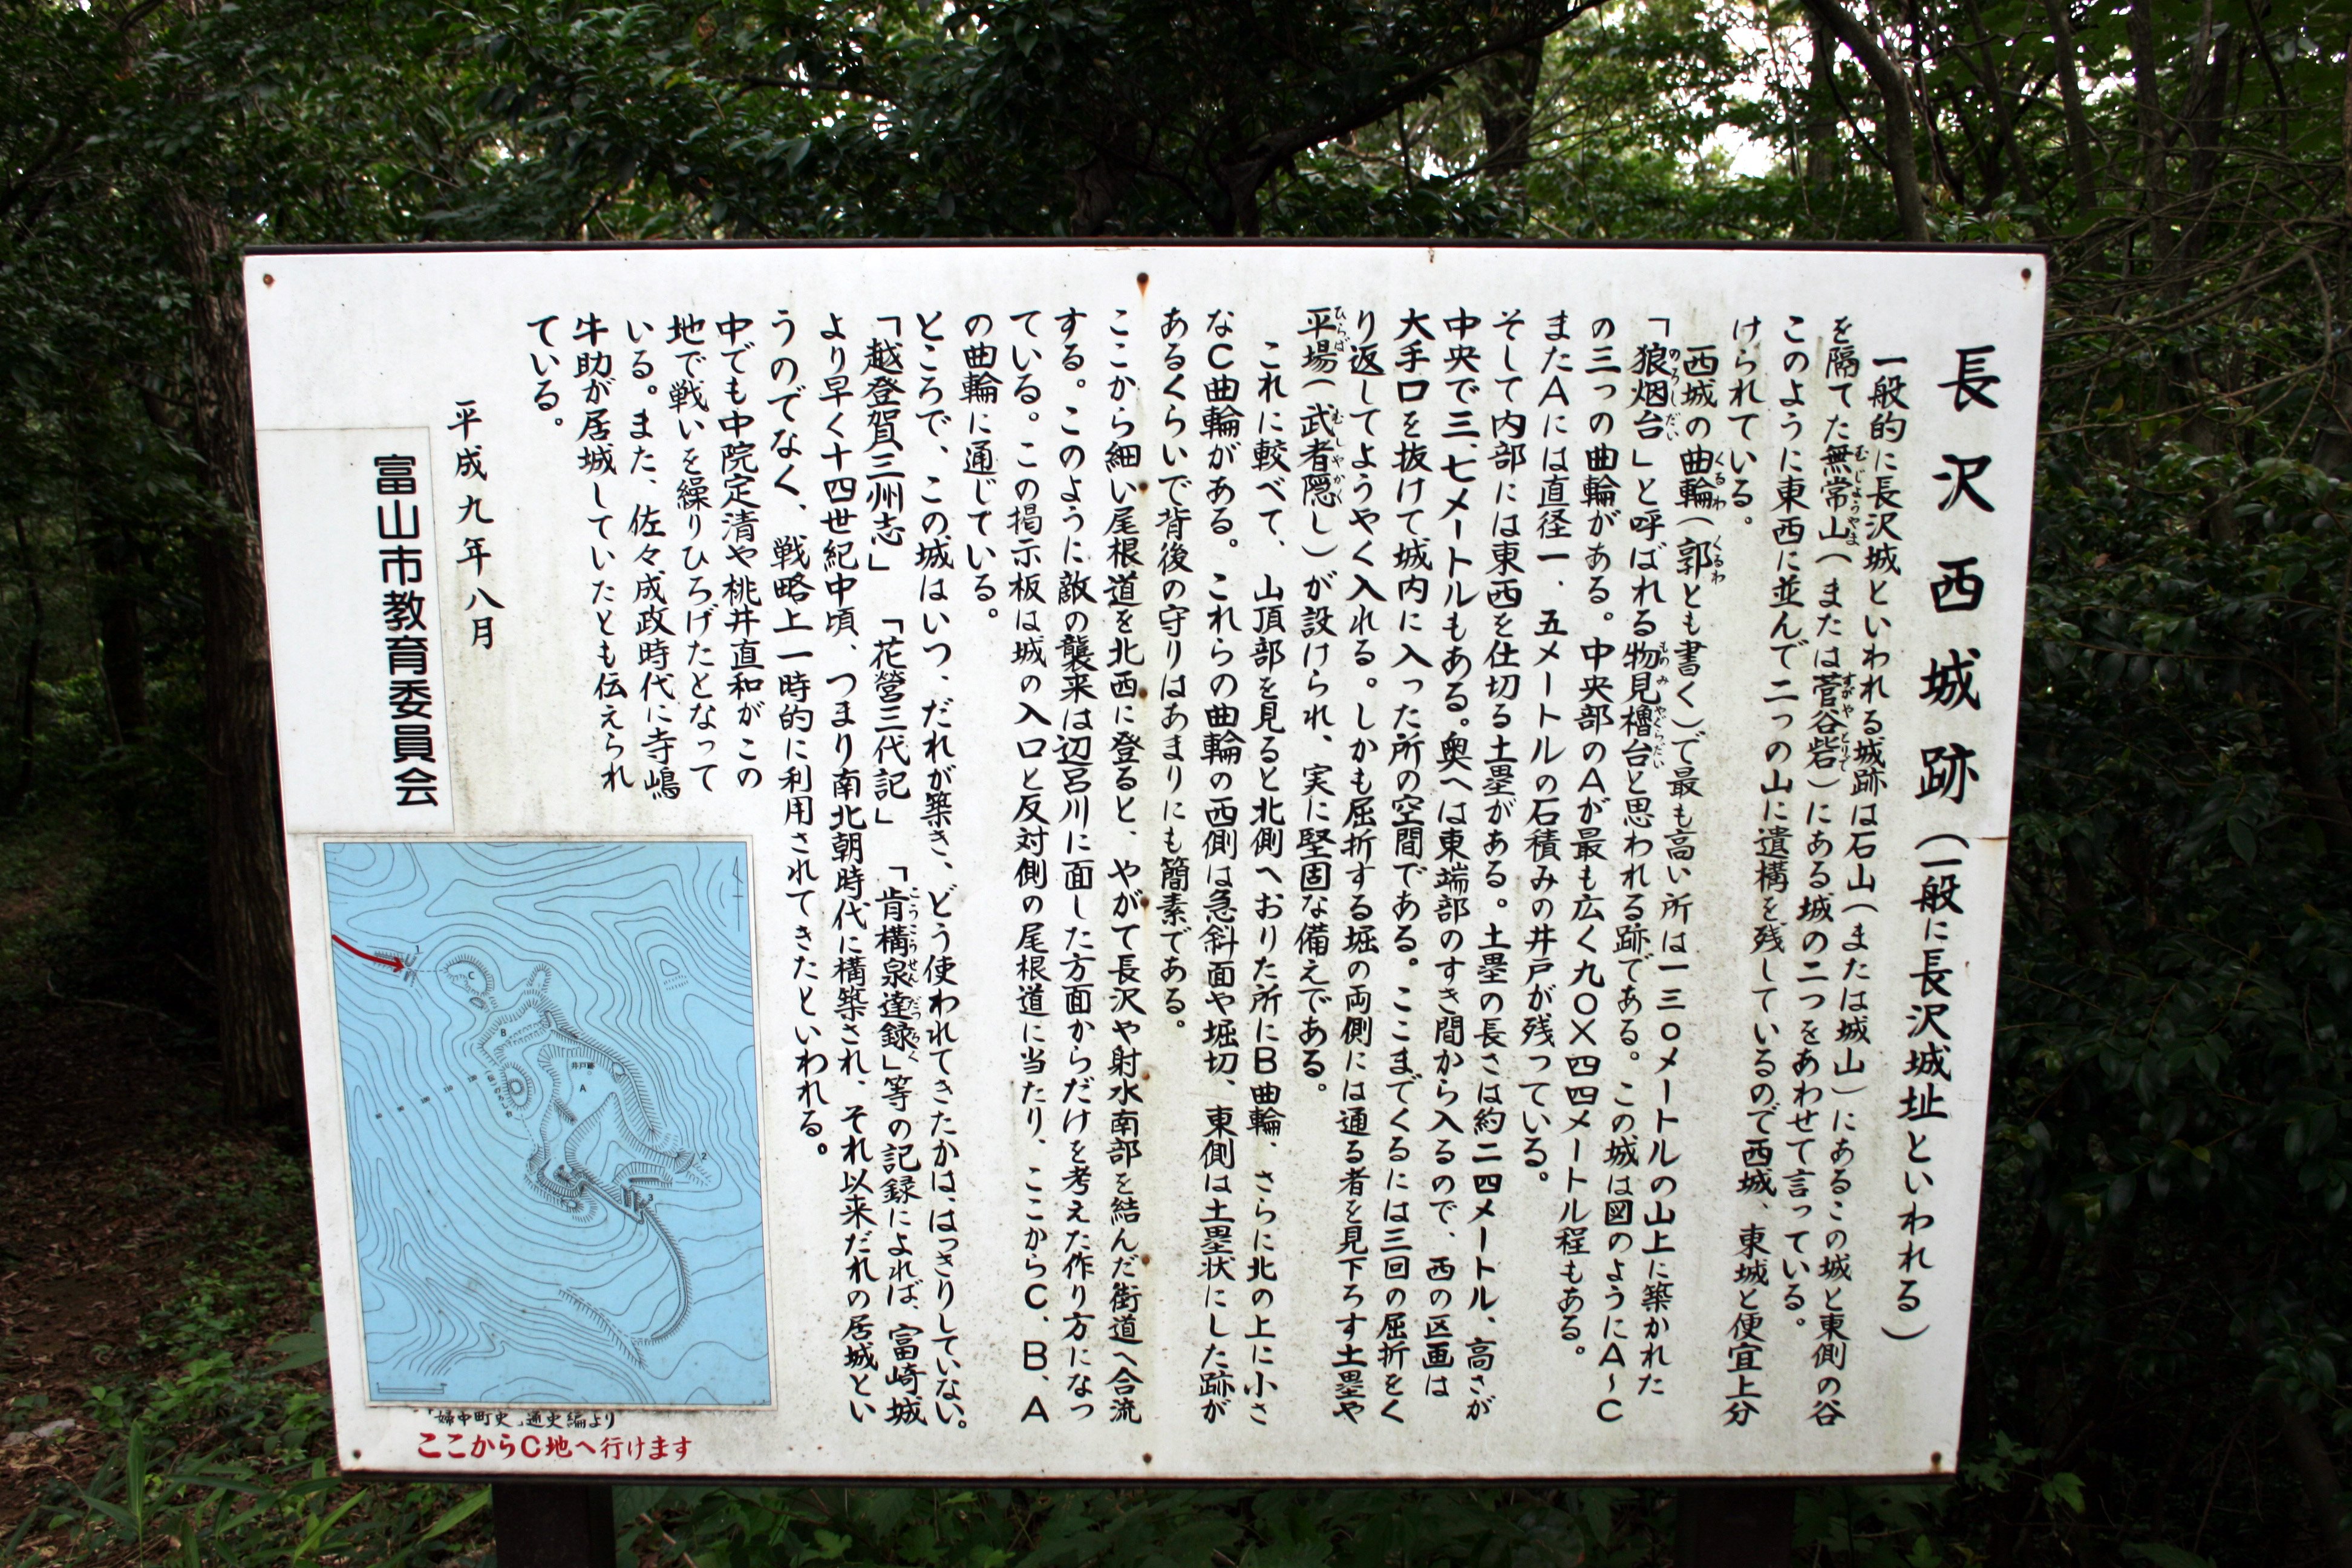 長沢西城跡(一般に長沢城址といわれる)
一般的に長沢城といわれる城跡は石山(または城山)にあるこの城と東側の谷
を隔てた無常山(または菅谷砦)にある城の二つをあわせて言っている。
このように東西に並んで二っの山に遺構を残しているので西城、東城と便宜上分
けられている。
西城の曲輪(郭とも書く)で最も高い所は一三〇メートルの山上に築かれた
「狼烟台」と呼ばれる物見櫓台と思われる跡である。この城は図のようにA〜C
の三っの曲輪がある。中央部のAが最も広く九〇×四四メートル程もある。
またAには直径一.五メートルの石積みの井戸が残っている。
そして内部には東西を仕切る土塁がある。土塁の長さは約二四メートル、高さが
中央で三、七メートルもある。奥へは東端部のすき間から入るので、西の区画は
大手口を抜けて城内に入った所の空間である。ここまでくるには三回の屈折をく
り返してようやく入れる。しかも屈折する堀の両側には通る者を見下ろす土塁や
平場(武者隠し)が設けられ、実に堅固な備えである。
これに較べて、山頂部を見ると北側へおりた所にB曲輪、さらに北の上に小さ
なC曲輪がある。これらの曲輪の西側は急斜面や堀切、東側は土塁状にした跡が
あるくらいで背後の守りはあまりにも簡素である。
ここから細い尾根道を北西に登ると、やがて長沢や射水南部を結んだ街道へ合流
する。このように敵の襲来は辺呂川に面した方面からだけを考えた作り方になっ
ている。この掲示板は城の入口と反対側の尾根道に当たり、ここからC、B、A
の曲輪に通じている。
ところで、この城はいつ、だれが築き、どう使われてきたかは、はっきりしていない。
「越登賀三州志」「花營三代記」「肯構泉達録」等の記録によれば、富崎城
より早く十四世紀中頃、つまり南北朝時代に構築され、それ以来だれの居城とい
うのでなく、戦略上一時的に利用されてきたといわれる。
中でも中院定清や桃井直和がこの
地で戦いを繰りひろげたとなって
いる。また、佐々成政時代に寺嶋
牛助が居城していたとも伝えられ
ている。
平成九年八月
富山市教育委員会
1
C
B
井戸跡
A
2
3
「婦中町史」通史編より
ここからC地へ行けます